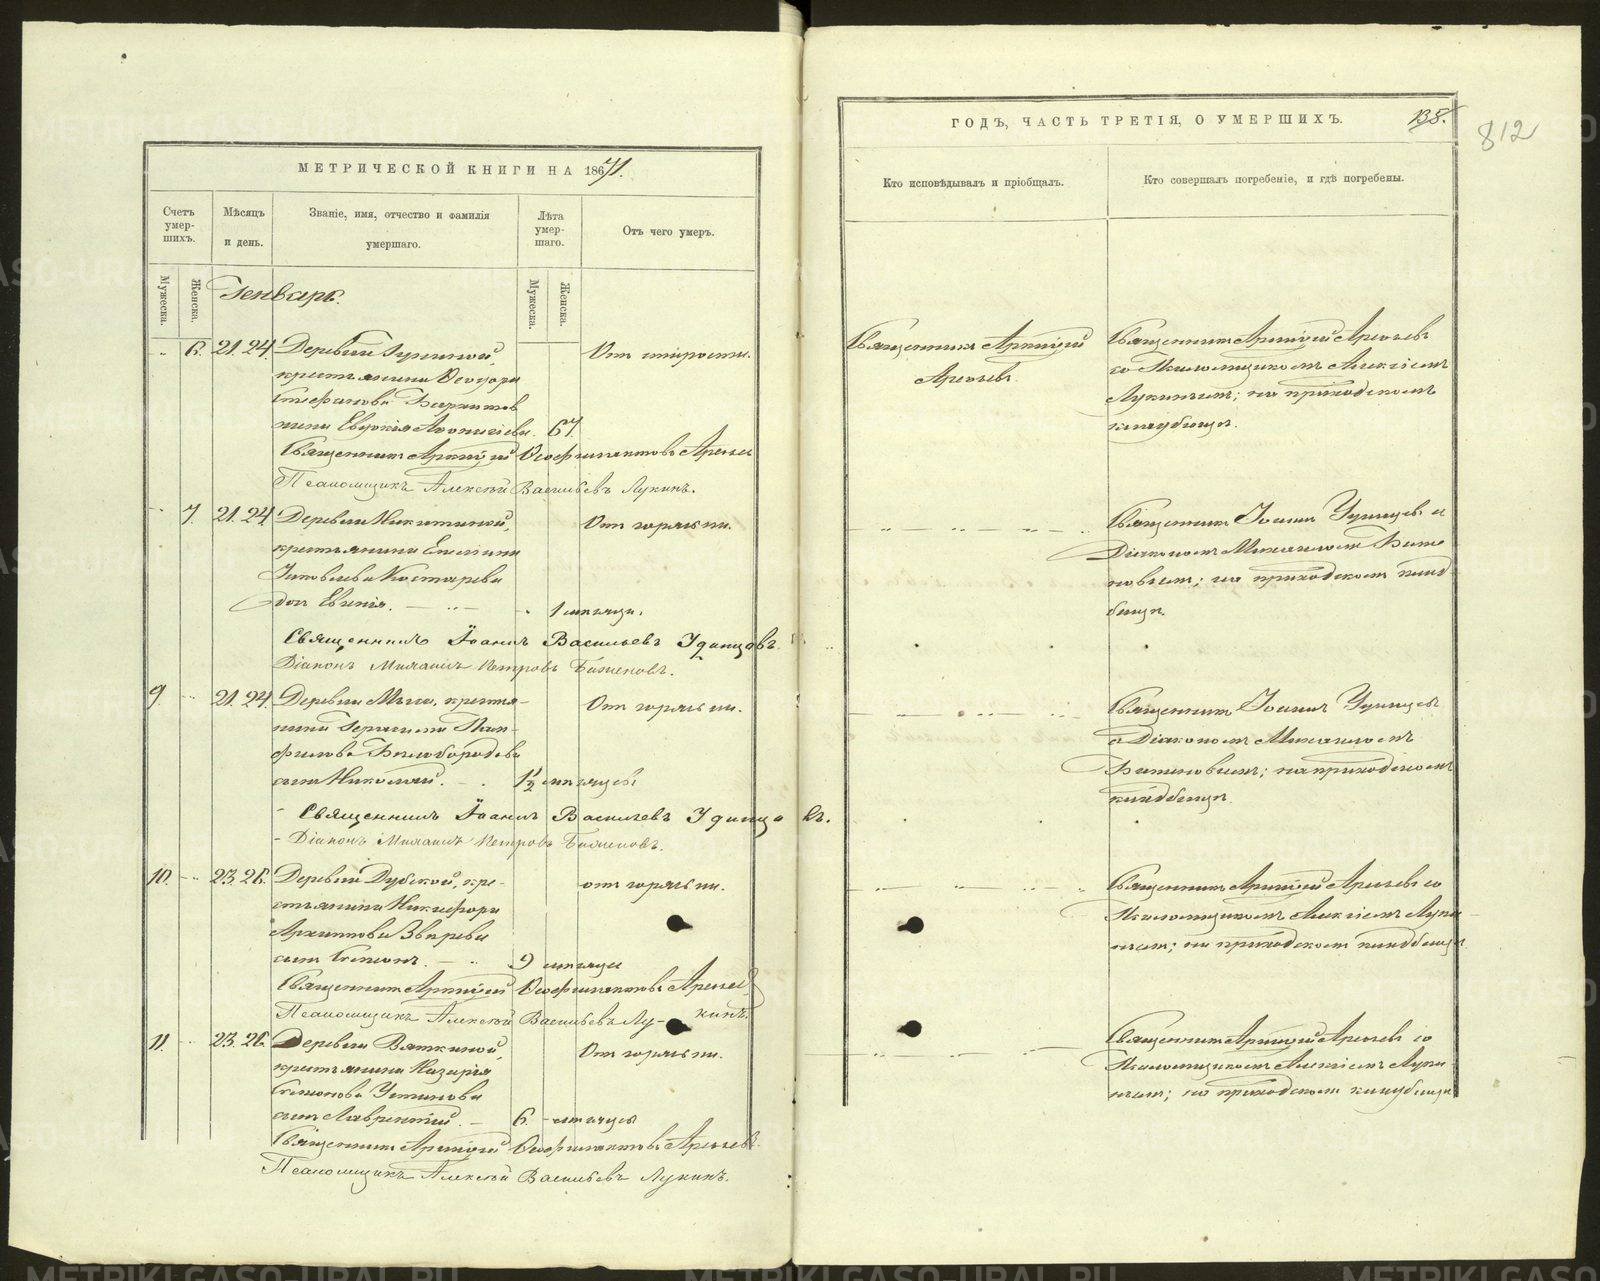 МЕТРИЧЕСКОЙ КНИГИ НА 1871.
Счетъ умер-шихъ.
Мужеска.
Женска.
Мѣсяцъ и день.
Званіе, имя, отчество и фамилія умершаго.
Лѣта умер-шаго.
Мужеска.
Женска.
Отъ чего умеръ.
Генварь.
6. 21. 24. Деревни
крестьянина Ѳеодора
Стефанова
жена Евдокія 67.
Отъ старости.
Священникъ Аркадій Ѳеофилактовъ Арефьевъ
Псаломщикъ Алексѣй Васильевъ Лукинъ.
7. 21. 24. Деревни Никитиной,
крестьянина
Іаковлева Костарева
дочь Евгенія. 1 мѣсяцъ.
Отъ горячки.
Священникъ Іоаннъ Васильевъ Удинцовъ.
Діаконъ Михаилъ Петровъ Баженовъ.
9 21. 24. Деревни крестья-
нина Герасима Пан-
филова Бѣлобородова
сынъ Николай. 1 1/2 мѣсяцъ
Отъ горячки.
Священникъ Іоаннъ Васильевъ Удинцовъ.
Діаконъ Михаилъ Петровъ Баженовъ.
10. 23. 26. Деревни Дубской, кре-
стьянина Никифора
Архипова Звѣрева
сынъ Симеонъ. 9 мѣсяцъ
отъ горячки.
Священникъ Аркадій Ѳеофилактовъ Арефьевъ
Псаломщикъ Алексѣй Васильевъ Лу-кинъ.
11. 23. 26. Деревни Вяткиной,
крестьянина Назарія
Симеонова Устинова
сынъ Лаврентій. 6. мѣсяцъ
Отъ горячки.
Священникъ Аркадій Ѳеофилактовъ Арефьевъ.
Псаломщикъ Алексѣй Васильевъ Лукинъ.
ГОДЪ, ЧАСТЬ ТРЕТІЯ, О УМЕРШИХЪ.
138.
812
Кто исповѣдывалъ и пріобщалъ.
Кто совершалъ погребеніе, и гдѣ погребены.
Священникъ Аркадій
Арефьевъ.
Священникъ Аркадій Арефьевъ
со Псаломщикомъ Алексіемъ
Лукинымъ; на приходскомъ
кладбищѣ.
Священникъ Іоаннъ Удинцевъ съ
Діакономъ Михаиломъ Баже
новымъ; на приходскомъ клад-
бищѣ.
Священникъ Іоаннъ Удинцевъ
съ Діакономъ Михаиломъ
Баженовымъ; на приходскомъ
кладбищѣ.
Священникъ Аркадій Арефьевъ со
Псаломщикомъ Алексіемъ Луки
нымъ; на приходскомъ кладбищѣ.
Священникъ Аркадій Арефьевъ со
Псаломщикомъ Алексіемъ Луки
нымъ; на приходскомъ кладбищѣ
METRIKI.GASO-URAL.RU